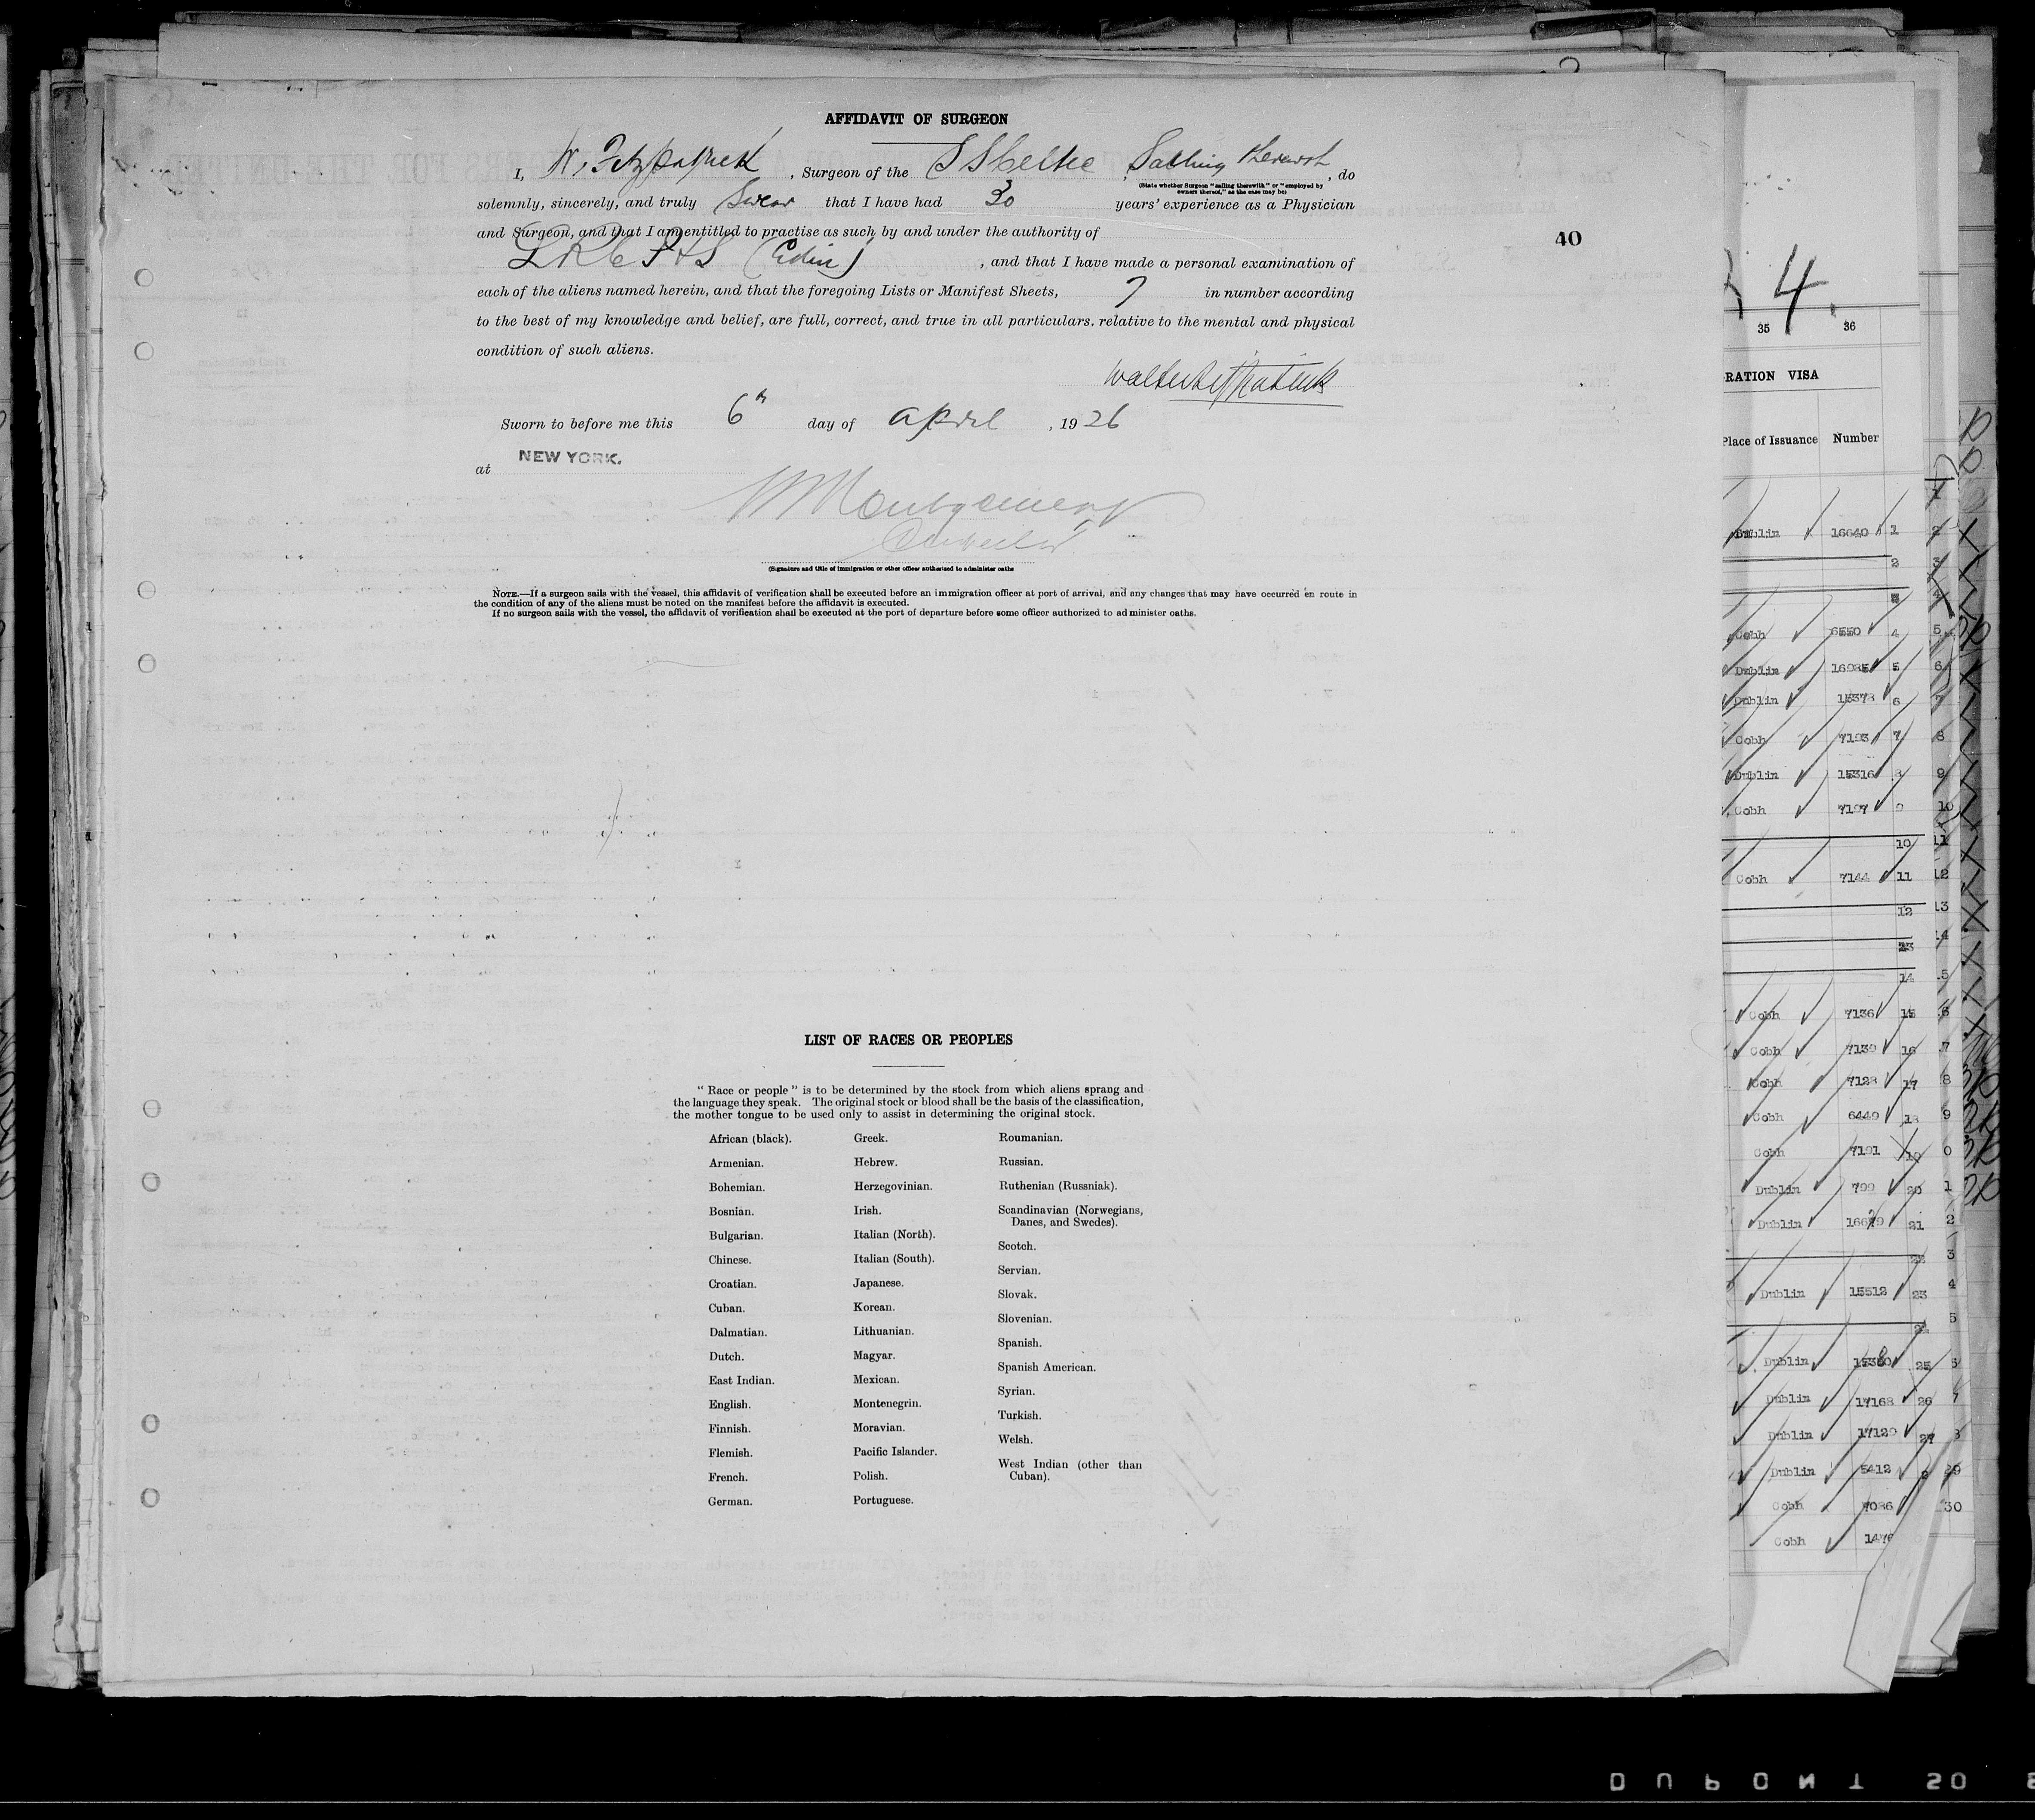 AFFIDAVIT OF SURGEON
I, W. Fitzpatrick, Surgeon of the SS Celtic, Sailing therewith, do
(State whether Surgeon "sailing therewith" or "employed by
owners thereof," as the case may be)
solemnly, sincerely, and truly Swear that I have had 30 years' experience as a Physician
and Surgeon, and that I am entitled to practise as such by and under the authority of
LRCP&S (Edin), and that I have made a personal examination of
40
each of the aliens named herein, and that the foregoing Lists or Manifest Sheets, 7 in number according
to the best of my knowledge and belief, are full, correct, and true in all particulars. relative to the mental and physical
condition of such aliens.
Walter Fitzpatrick
Sworn to before me this 6th day of April, 1926
at NEW YORK.
Montgomery
(Signature and title of immigration or other officer authorized to administer oaths
NOTE.—If a surgeon sails with the vessel, this affidavit of verification shall be executed before an immigration officer at port of arrival, and any changes that may have occurred en route in
the condition of any of the aliens must be noted on the manifest before the affidavit is executed.
If no surgeon sails with the vessel, the affidavit of verification shall be executed at the port of departure before some officer authorized to administer oaths.
LIST OF RACES OR PEOPLES
"Race or people" is to be determined by the stock from which aliens sprang and
the language they speak. The original stock or blood shall be the basis of the classification,
the mother tongue to be used only to assist in determining the original stock.
African (black).
Armenian.
Bohemian.
Bosnian.
Bulgarian.
Chinese.
Croatian.
Cuban.
Dalmatian.
Dutch.
East Indian.
English.
Finnish.
Flemish.
French.
German.
Greek.
Hebrew.
Herzegovinian.
Irish.
Italian (North).
Italian (South).
Japanese.
Korean.
Lithuanian.
Magyar.
Mexican.
Montenegrin.
Moravian.
Pacific Islander.
Polish.
Portuguese.
Roumanian.
Russian.
Ruthenian (Russniak).
Scandinavian (Norwegians,
Danes, and Swedes).
Scotch.
Servian.
Slovak.
Slovenian.
Spanish.
Spanish American.
Syrian.
Turkish.
Welsh.
West Indian (other than
Cuban).
4.
35 36
RATION VISA
Place of Issuance Number
Dublin 16640 1 2
2 3
4
Cobh 6550 4 5
Dublin 5 6
Dublin 6 7
Cobh 7 8
Dublin 15316 8 9
Cobh 9 10
10 11
Cobh 7144 11 12
12 13
14
14
Cobh 7136 15
Cobh 7139 16
Cobh 7128 17
Cobh 6449
Cobh 7191 19
Dublin 799 20
Dublin 21
Dublin 15512 23
Dublin 25
Dublin 17168 26
Dublin 17129 27
Dublin 5412
Cobh 7086 30
Cobh
DUPONT